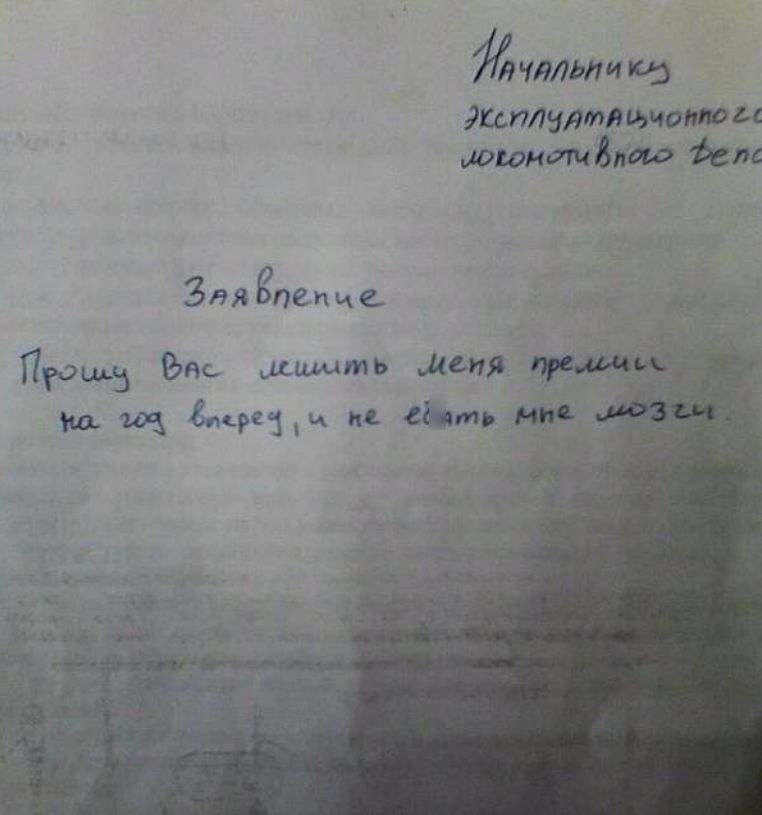 Начальнику
эксплуатационного
локомотивного депо
Заявление
Прошу Вас лишить меня премии
на год вперед, и не мне мозги.